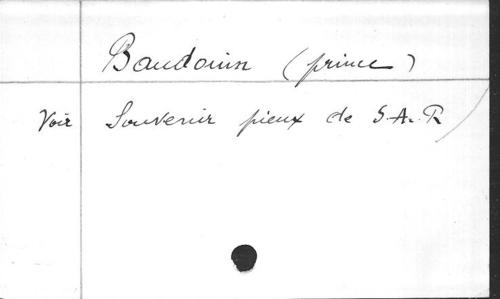 Baudouin (prince)
Voir Souvenir pieux de S.A.R